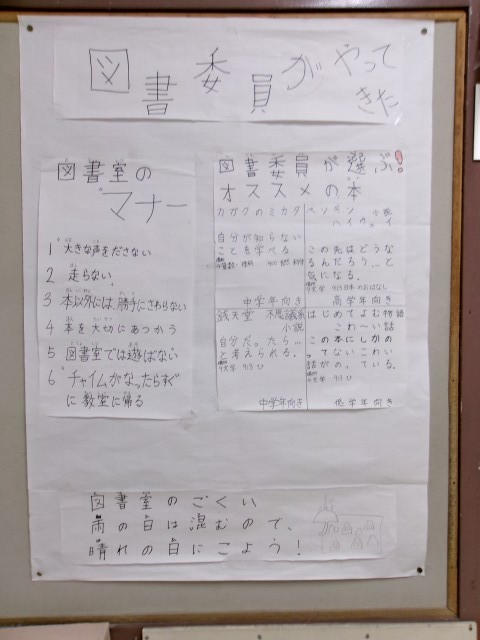 図書委員がやって
きた
図書室の
マナー
1 大きな声をださない
2 走らない
3 本以外には、勝手にさわらない
4 本を大切にあつかう
5 図書室では遊ばない
6 チャイムがなったらすぐ
に教室に帰る
図書委員が選ぶ!
オススメの本
カガクのミカタ
自分が知らない
ことを学べる
中学年向き
この先はどうな
るんだろう…と
気になる。
高学年向き
銭天堂 不思議系
小説
自分だったら…
と考えられる。
中学年向き
はじめてよむ物語
こわ〜い話
この本にしかの
ってないこわい
話がの、ている。
低学年向き
図書室のごくい
雨の日は混むので、
晴れの日にこよう!